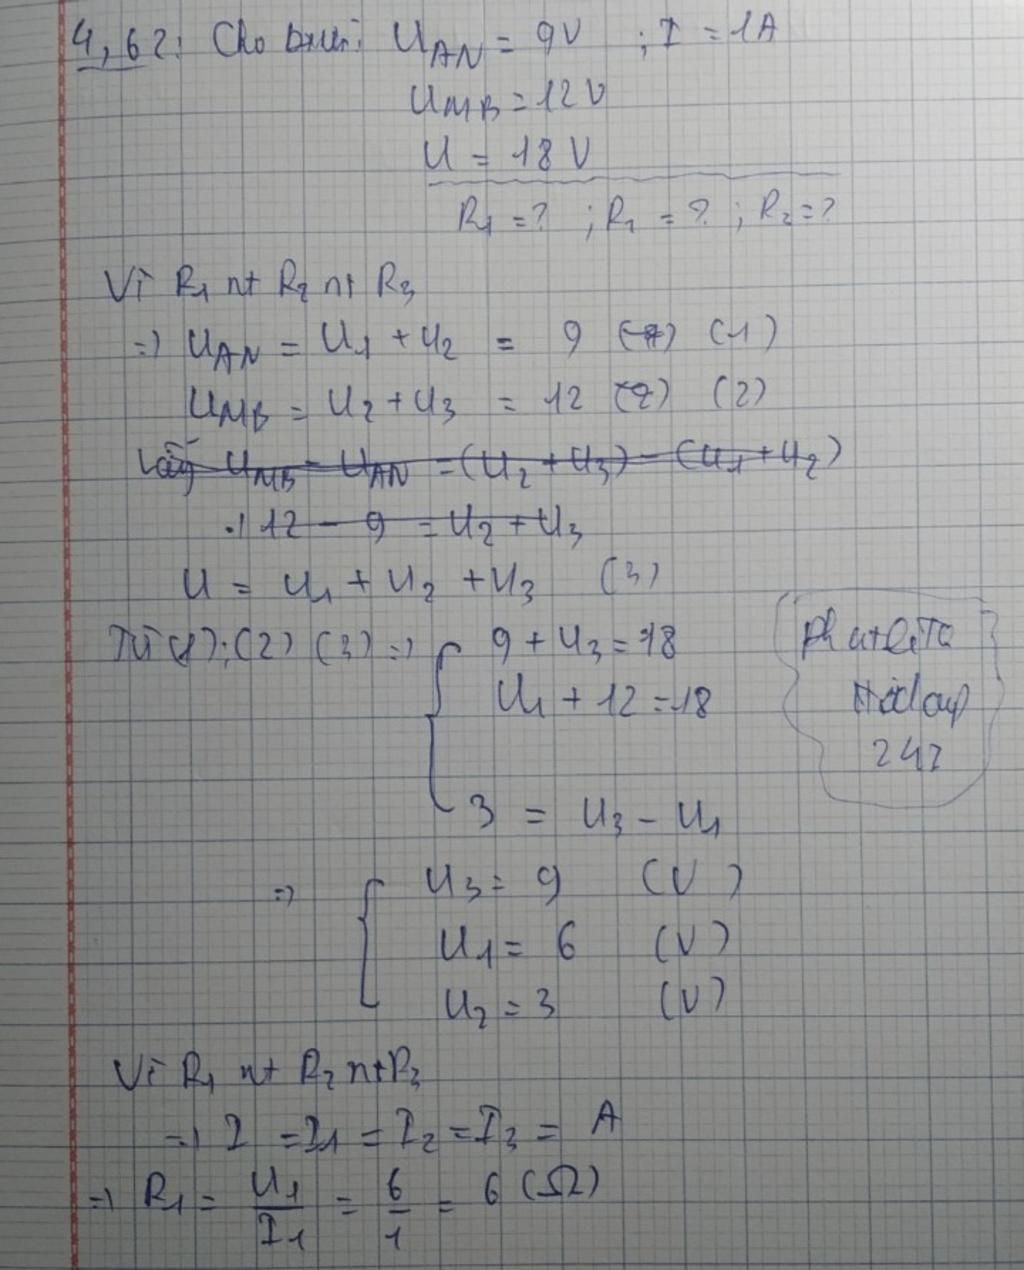 4,62: Cho biết: U_AN = 9V ; I = 1A
U_MB = 12V
U = 18 V
R₁ = ? ; R₁ = ? ; R₂ = ?
Vì R₁ nt R₂ nt R₃
=> U_AN = U₁ + U₂ = 9 (1)
U_MB = U₂ + U₃ = 12 (2) (2)
Lấy U_MB - U_AN = (U₂ + U₃) - (U₁ + U₂)
12 - 9 = U₂ + U₃
U = U₁ + U₂ + U₃ (3)
Từ (1); (2) (3) => { 9 + U₃ = 18
U₁ + 12 = 18
3 = U₃ - U₁
242
=> { U₃ = 9 (V)
U₁ = 6 (V)
U₂ = 3 (V)
Vì R₁ nt R₂ nt R₃
=> I = I₁ = I₂ = I₃ = A
=> R₁ = U₁/I₁ = 6/1 = 6 (Ω)